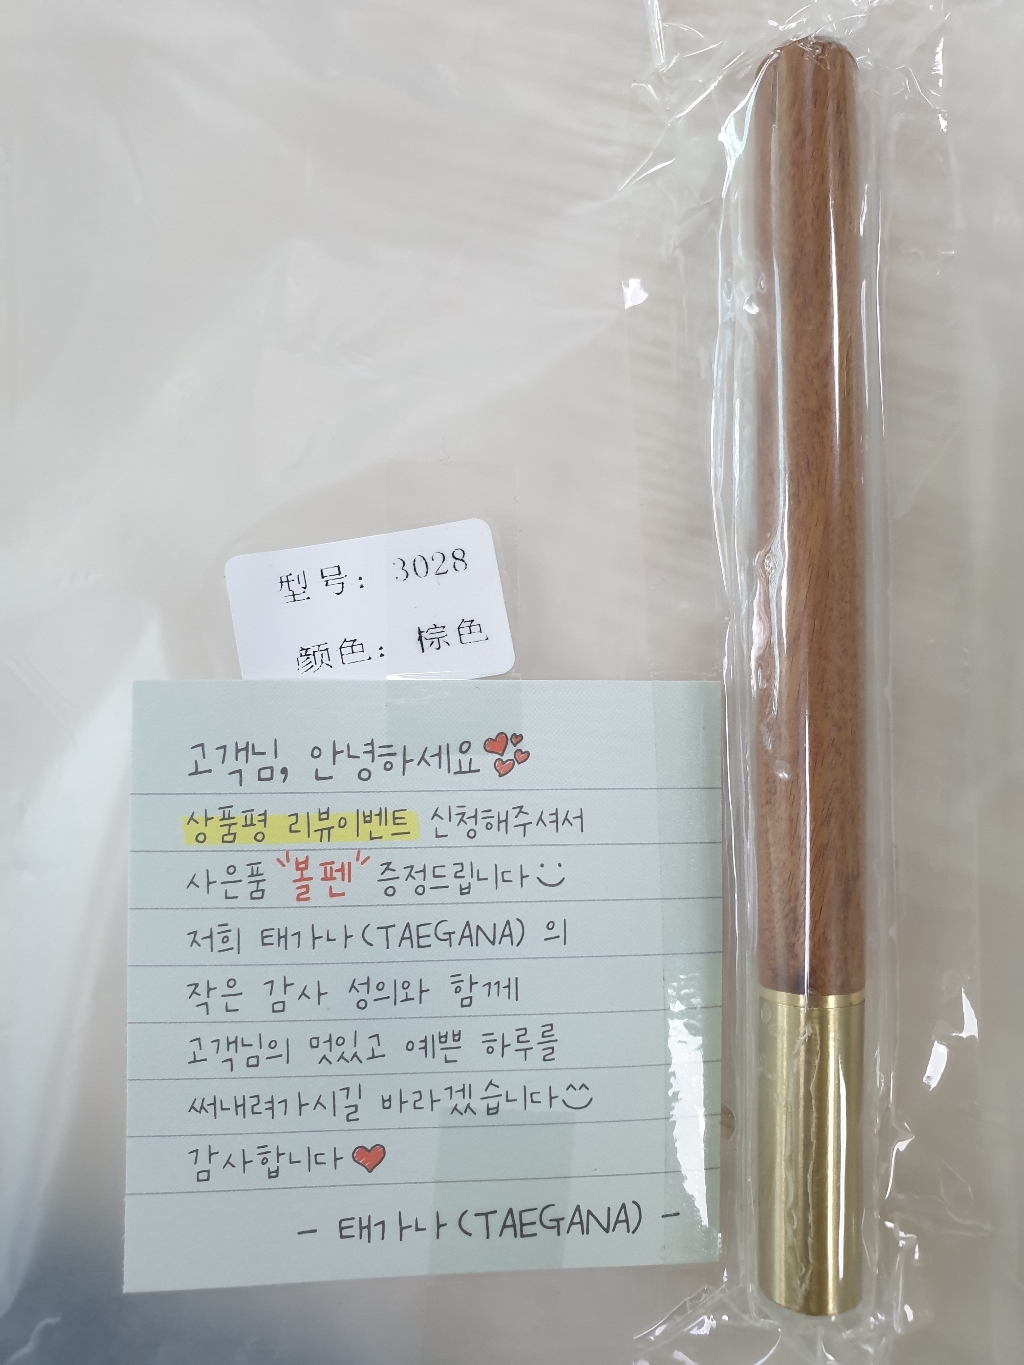 型号: 3028
颜色: 棕色
고객님, 안녕하세요
상품평 리뷰이벤트 신청해주셔서
사은품 "볼펜" 증정드립니다
저희 태가나(TAEGANA) 의
작은 감사 성의와 함께
고객님의 멋있고 예쁜 하루를
써내려가시길 바라겠습니다^^
감사합니다
- 태가나(TAEGANA) -